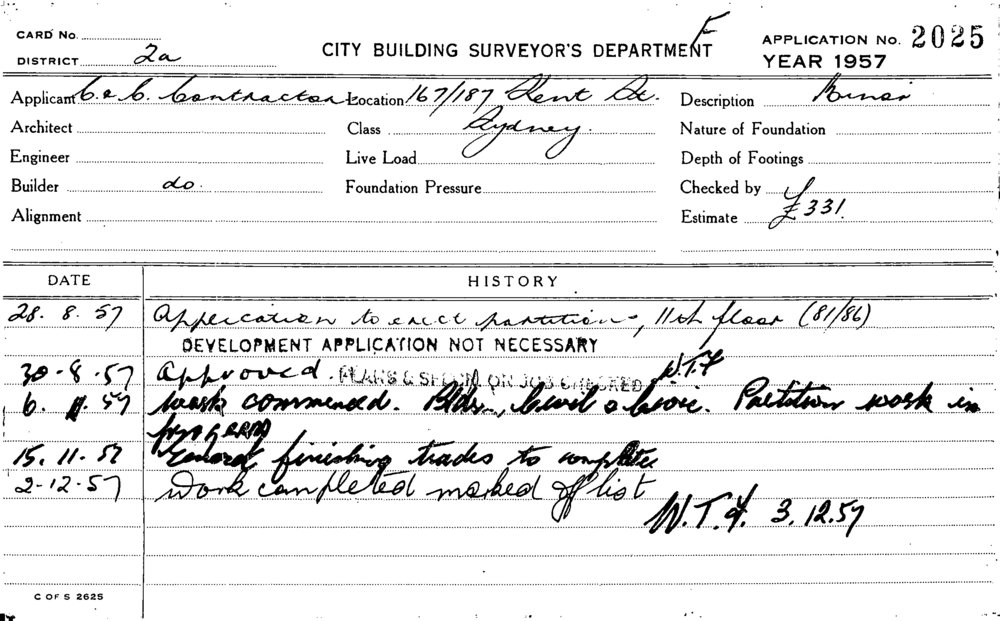 F
CARD No.
DISTRICT 2a
CITY BUILDING SURVEYOR'S DEPARTMENT
APPLICATION No. 2025
YEAR 1957
Applicant C. & C. Contractors Location 167/187 Kent St. Description Minor
Architect Class Sydney. Nature of Foundation
Engineer Live Load Depth of Footings
Builder do. Foundation Pressure Checked by
Alignment Estimate £331.
DATE HISTORY
28. 8. 57 Application to erect partitions, 11th floor (81/86)
DEVELOPMENT APPLICATION NOT NECESSARY
30-8-57 Approved. PLANS & SPECN. ON JOB CHECKED W.T.F
6. 11. 57 Work commenced. Bldr, Civil & Civic. Partition work in
progress
15. 11. 57 General finishing trades to complete
2-12-57 Work completed marked off list
W.T.F. 3.12.57
C OF S 2625